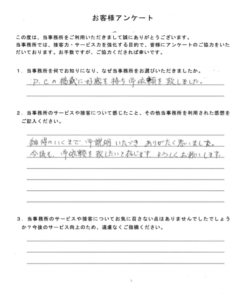 お客様アンケート
この度は、当事務所をご利用いただきまして誠にありがとうございます。
当事務所では、提案力・サービス力を強化する目的で、皆様にアンケートのご協力をいた
だいております。お手数ですが、ご協力くだされば幸いです。
1．当事務所を何でお知りになり、なぜ当事務所をお選びいただきましたか。
P.Cの掲載に好感を持ち御依頼を致しました。
2．当事務所のサービスや接客について感じたこと、その他当事務所を利用された感想を
ご記入ください。
納得のいくまで御説明いただき ありがたく思いました。
今後も、御依頼を致したいと存じます よろしくお願いします。
3．当事務所のサービスや接客についてお気に召さない点はありませんでしたでしょう
か？今後のサービス向上のため、遠慮なくご指摘ください。